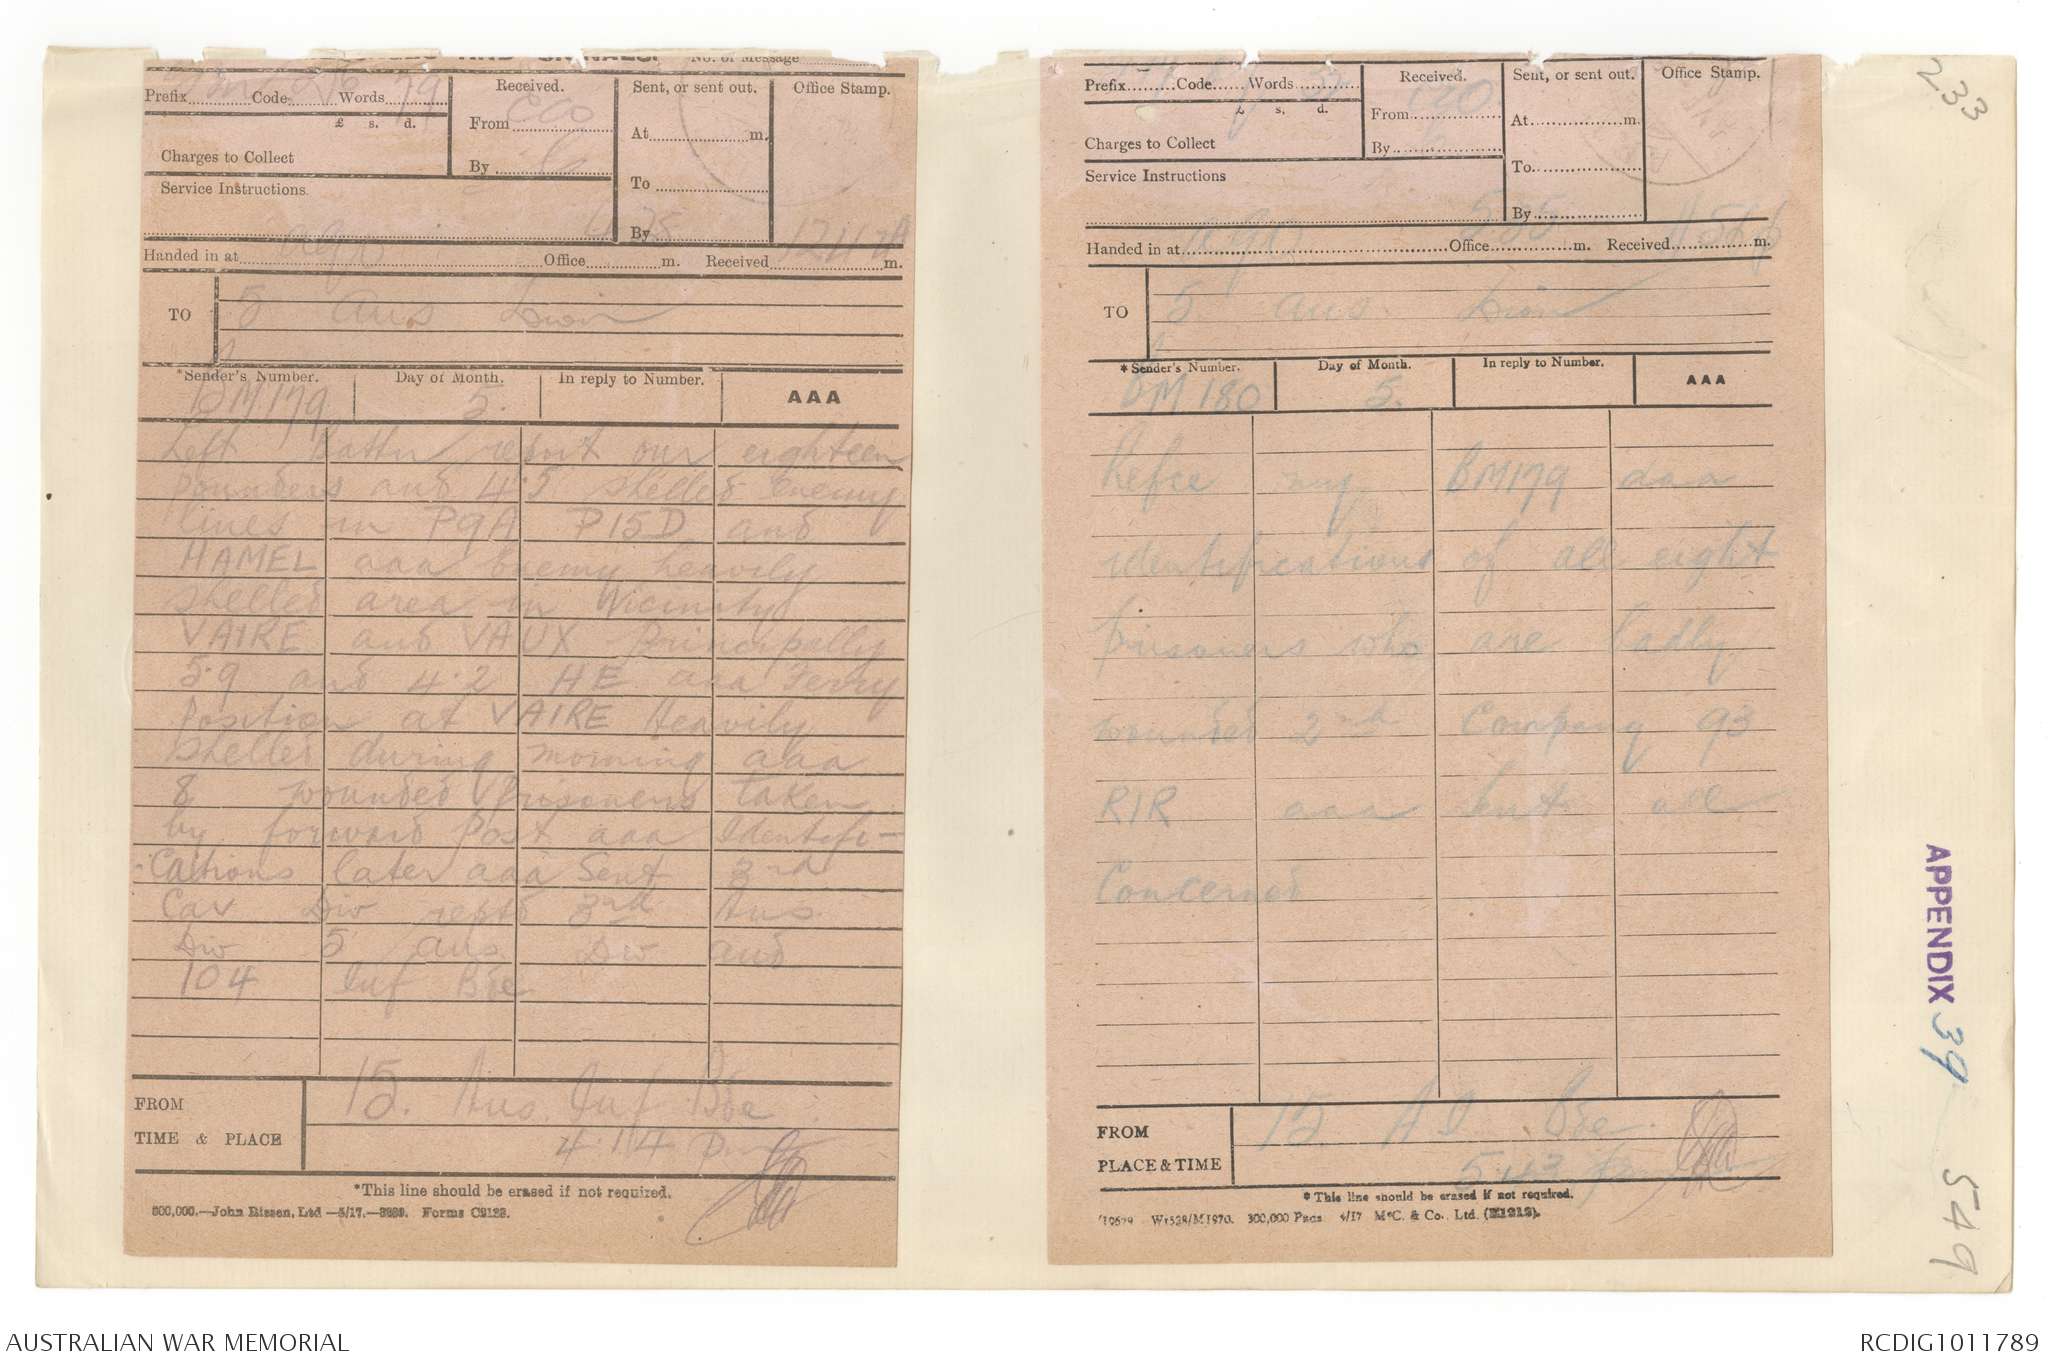 No. of Message
Prefix Code Words 79
£ s. d.
Charges to Collect
Service Instructions.
Received.
From
By
Sent, or sent out.
At m.
To
By
Office Stamp.
Handed in at Office m. Received m.
TO 5 Aus Divn
*Sender's Number.
Day of Month.
In reply to Number.
AAA
BM179 5.
Left Battn report our eighteen
pounders and 4.5 shelled Enemy
lines in P9A P15D and
HAMEL aaa Enemy heavily
shelled area in Vicinity
VAIRE and VAUX Principally
5.9 and 4.2 HE aaa Ferry
Position at VAIRE Heavily
shelled during morning aaa
8 wounded prisoners taken
by forward Post aaa Identifi-
Cations later aaa Sent 3rd
Cav Div reptd 3rd Aus
Div 5 Aus Div and
104 Inf Bde
FROM 15. Aus Inf Bde
TIME & PLACE 4.14 Pm
*This line should be erased if not required.
Prefix Code Words
£ s. d.
Charges to Collect
Service Instructions
Received.
From
By
Sent, or sent out.
At m.
To
By
Office Stamp.
Handed in at Office m. Received m.
TO 5 Aus. Divn
*Sender's Number.
Day of Month.
In reply to Number.
AAA
BM 180 5.
Refce my BM179 aaa
identifications of all eight
Prisoners who are badly
wounded 2nd Company 93
RIR aaa Sent all
Concerned
FROM 15 A I Bde.
PLACE & TIME 5.43 Pm
*This line should be erased if not required.
233
APPENDIX 39
549
AUSTRALIAN WAR MEMORIAL
RCDIG1011789